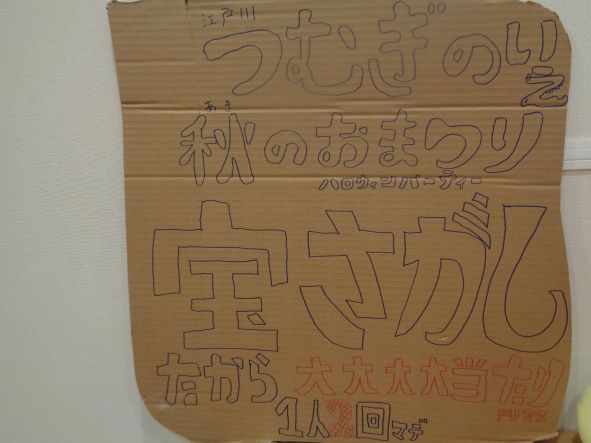 江戸川
つむぎのいえ
あき
秋のおまつり
ハロウィンパーティー
宝さがし
たから 大大大大当たり
アリマス
1人2回マデ